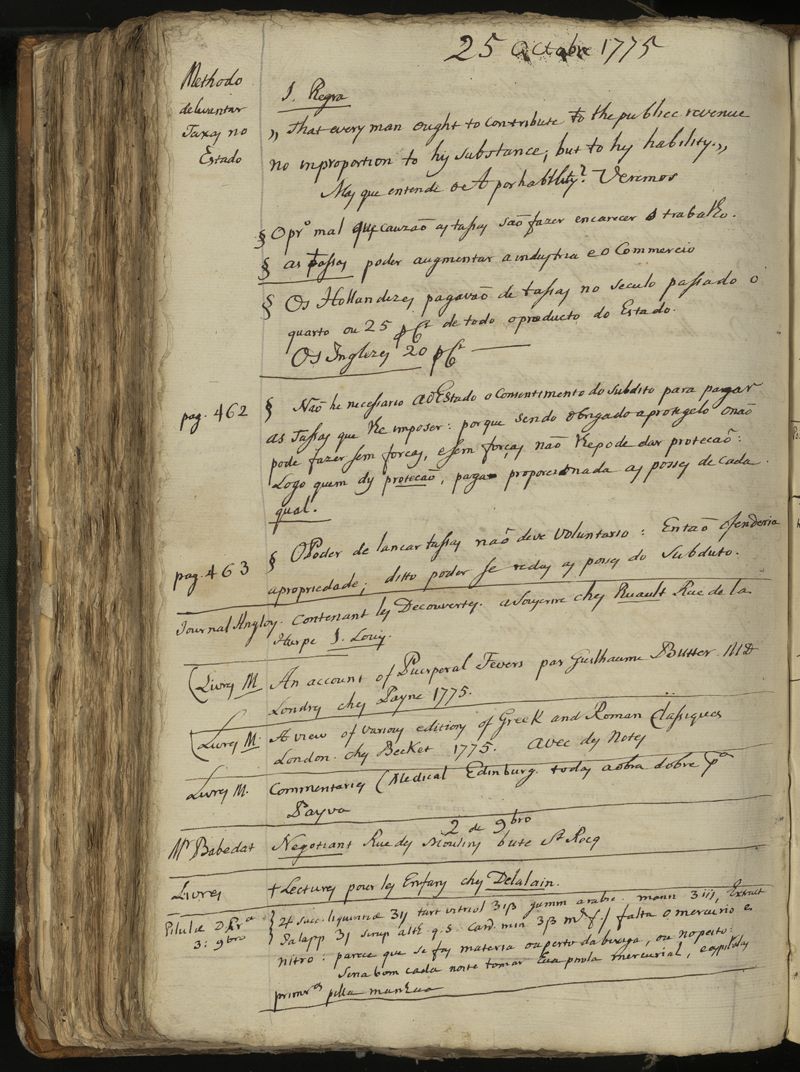 25 Octobre 1775
Methodo
de levantar
Taxas no
Estado
1. Regra
„ That every man ought to contribute to the publick revenue
no inproportion to hys substance; but to hys hability.„
Mas que entende o A por habillity? Veremos
§ O pr.º mal que cauzaõ as tassas saõ fazer encarecer o trabalho.
§ as tassas poder augmentar a industria e o Commercio
§ Os Hollandezes pagavaõ de tassas no seculo passado o
quarto ou 25 p Ct de todo o producto do Estado.
Os Inglezes 20 p Ct
pag. 462
§ Naõ he necessario ao Estado o Consentimento do subdito para pagar
as Tassas que lhe imposer: porque sendo obrigado a protegelo o naõ
pode fazer sem forças, e sem forças naõ lhe pode dar protecaõ:
Logo quem dis protecaõ, paga proporcionada as posses de cada
qual.
pag. 463
§ O Poder de lancar tassas naõ deve voluntario: Entaõ ofenderia
a propriedade; ditto poder se redus as posses do Subdito.
Journal Anglois. Contenant les Decouvertes. a Souscrire ches Ruault Rue de la
Harpe 1. Louis.
(Livres M. An account of Puerperal Fevers par Guilhaume Butter MD
Londres ches Payne 1775.
(Livres M. A view of various editions of Greek and Roman Classiques
London. ches Becket 1775. avec des Notes
Livres M. Commentaries (Medical Edinburg. todas a obra dobre p.ª
Payva
2 de 9bro
Mr Babedat Negotiant Rue des Moulins bute St Rocq
Livres + Lectures pour les Enfans ches Delalain.
Pilulæ
3: 9bro
succ. liquiritiæ tart vitriol gumm arabic. mann Extract
Salapp sirup alth q.s. Card. min falta o mercurio e
nitro: parece que se fas materia ou perto da bexiga, ou no peito:
Seria bom cada noite tomar hua pirola mercurial, e as pilulas
primr.as pella manhua